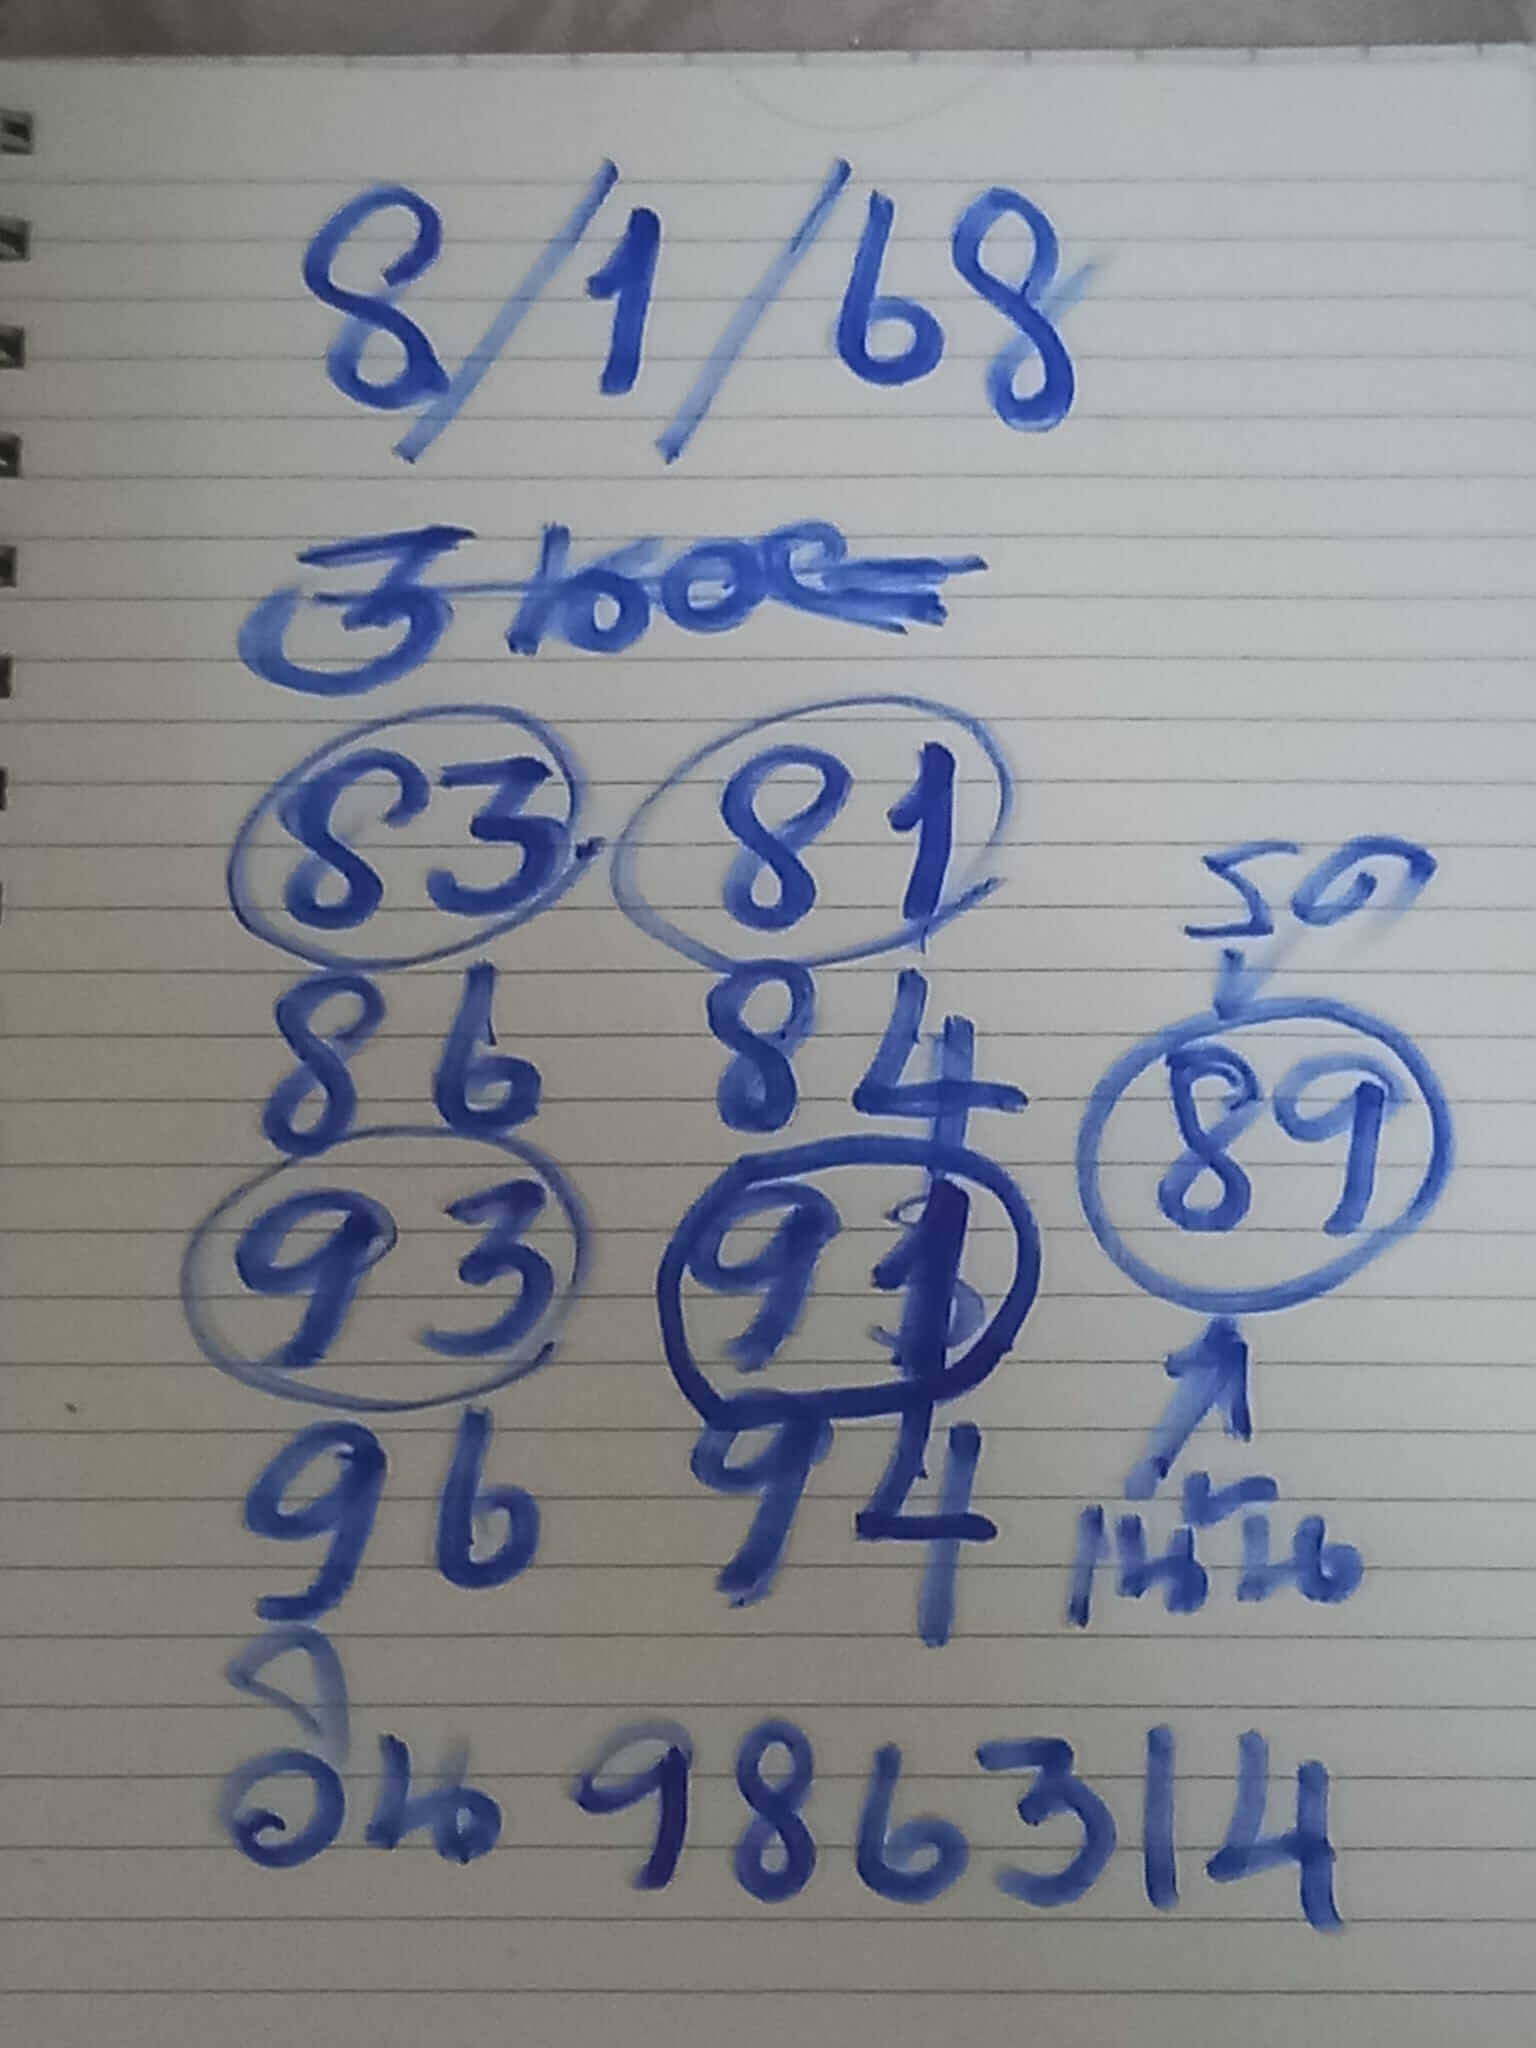 8/1/68
83 81
รด
86 84
89
93 91
96 94
เน้น
วิน 986314